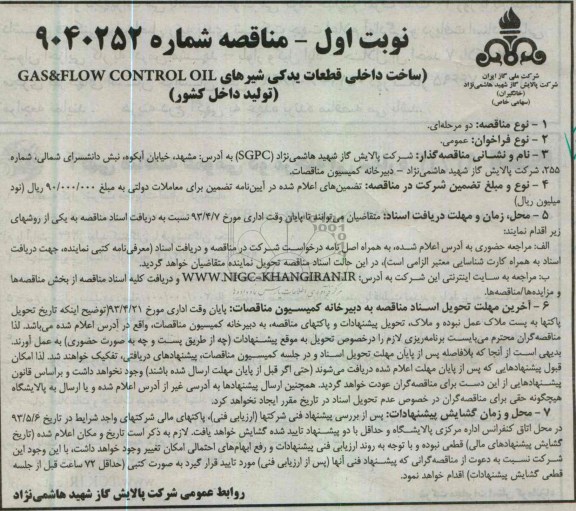 نوبت اول – مناقصه شماره ۹۰۴۰۲۵۲
شرکت ملی گاز ایران
شرکت پالایش گاز شهید هاشمی‌نژاد
(خانگیران)
(سهامی خاص)
(ساخت داخلی قطعات یدکی شیرهای GAS&FLOW CONTROL OIL
(تولید داخل کشور)
۱ – نوع مناقصه: دو مرحله‌ای.
۲ – نوع فراخوان: عمومی.
۳ – نام و نشانی مناقصه‌گذار: شرکت پالایش گاز شهید هاشمی‌نژاد (SGPC) به آدرس: مشهد، خیابان آبکوه، نبش دانشسرای شمالی، شماره
۲۵۵، شرکت پالایش گاز شهید هاشمی‌نژاد – دبیرخانه کمیسیون مناقصات.
۴ – نوع و مبلغ تضمین شرکت در مناقصه: تضمین‌های اعلام شده در آیین‌نامه تضمین برای معاملات دولتی به مبلغ ۹۰/۰۰۰/۰۰۰ ریال (نود
میلیون ریال)
۵ – محل، زمان و مهلت دریافت اسناد: متقاضیان می‌توانند تا پایان وقت اداری مورخ ۹۳/۴/۷ نسبت به دریافت اسناد مناقصه به یکی از روشهای
زیر اقدام نمایند:
الف: مراجعه حضوری به آدرس اعلام شده، به همراه اصل نامه درخواست شرکت در مناقصه و دریافت اسناد (معرفی‌نامه کتبی نماینده، جهت دریافت
اسناد به همراه کارت شناسایی معتبر الزامی است)، در این حالت اسناد مناقصه تحویل نماینده متقاضیان خواهد گردید.
ب: مراجعه به سایت اینترنتی این شرکت به آدرس: WWW.NIGC-KHANGIRAN.IR و دریافت کلیه اسناد مناقصه از بخش مناقصه‌ها
و مزایده‌ها/مناقصه‌ها.
۶ – آخرین مهلت تحویل اسناد مناقصه به دبیرخانه کمیسیون مناقصات: پایان وقت اداری مورخ ۹۳/۴/۲۱(توضیح اینکه تاریخ تحویل
پاکتها به پست ملاک عمل نبوده و ملاک، تحویل پیشنهادات و پاکتهای مناقصه، به دبیرخانه کمیسیون مناقصات، واقع در آدرس اعلام شده می‌باشد. لذا
مناقصه‌گران محترم می‌بایست برنامه‌ریزی لازم را درخصوص تحویل به موقع پیشنهادات (چه از طریق پست و چه به صورت حضوری) به عمل آورند.
بدیهی است از آنجا که بلافاصله پس از پایان مهلت تحویل اسناد و در جلسه کمیسیون مناقصات، پیشنهادهای دریافتی، تفکیک خواهند شد. لذا امکان
قبول پیشنهادهایی که پس از پایان مهلت اعلام شده دریافت می‌شوند (حتی اگر قبل از پایان مهلت ارسال شده باشند) وجود نخواهد داشت و براساس قانون
پیشنهادهایی از این دست برای مناقصه‌گران عودت خواهد گردید. همچنین ارسال پیشنهادها به آدرسی غیر از آدرس اعلام شده و یا ارسال به پالایشگاه
هیچگونه حقی برای مناقصه‌گران در خصوص عدم تحویل اسناد در تاریخ مقرر ایجاد نخواهد کرد.
۷ – محل و زمان گشایش پیشنهادات: پس از بررسی پیشنهاد فنی شرکتها (ارزیابی فنی)، پاکتهای مالی شرکتهای واجد شرایط در تاریخ ۹۳/۵/۶
در محل اتاق کنفرانس اداره مرکزی پالایشگاه و حداقل با دو پیشنهاد تایید شده گشایش خواهد یافت. لازم به ذکر است تاریخ و مکان اعلام شده (تاریخ
گشایش پیشنهادهای مالی) قطعی نبوده و با توجه به روند ارزیابی فنی پیشنهادات و رفع ابهام‌های احتمالی امکان تغییر وجود خواهد داشت، با این وجود این
شرکت نسبت به دعوت از مناقصه‌گرانی که پیشنهاد فنی آنها (پس از ارزیابی فنی) مورد تایید قرار گیرد به صورت کتبی (حداقل ۷۲ ساعت قبل از جلسه
قطعی گشایش پیشنهادات) اقدام خواهد نمود.
روابط عمومی شرکت پالایش گاز شهید هاشمی‌نژاد